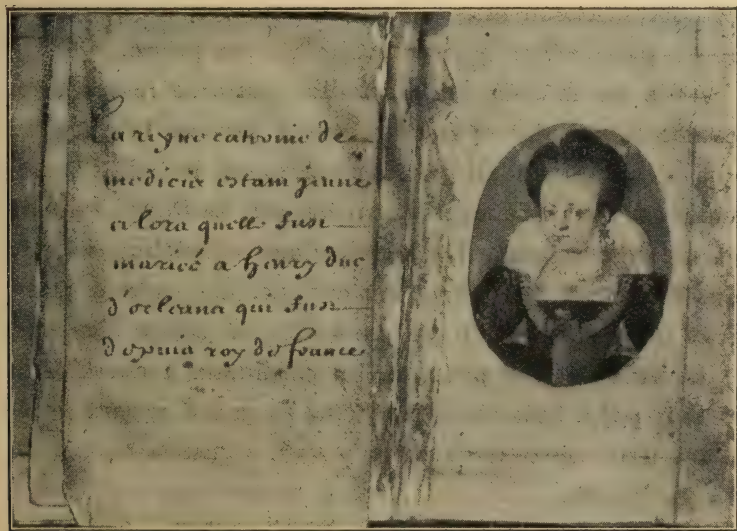 La reyne caterine de
medicis estant jeune
alors quelle fust
mariée a henry duc
d'orleans qui fust
depuis roy de france